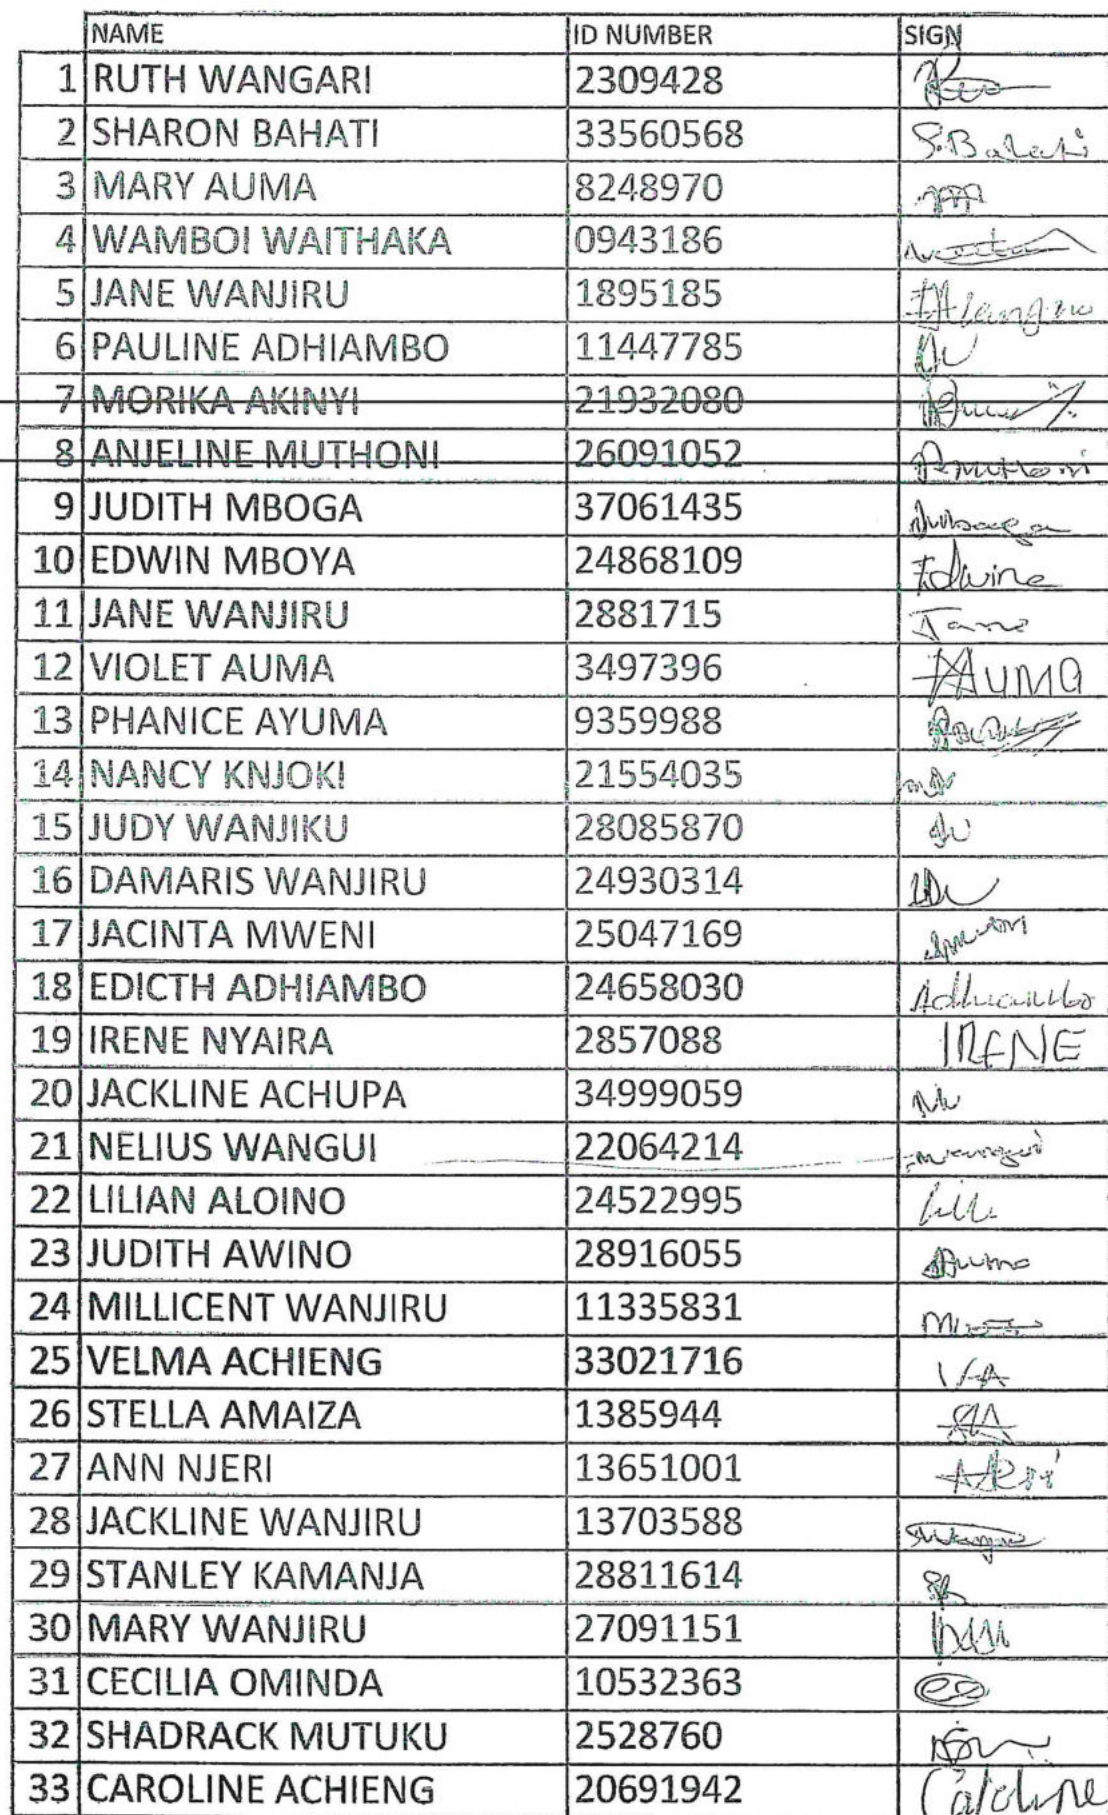 NAME ID NUMBER SIGN
1 RUTH WANGARI 2309428
2 SHARON BAHATI 33560568 S.Bahati
3 MARY AUMA 8248970
4 WAMBOI WAITHAKA 0943186
5 JANE WANJIRU 1895185
6 PAULINE ADHIAMBO 11447785
7 MORIKA AKINYI 21932080
8 ANJELINE MUTHONI 26091052
9 JUDITH MBOGA 37061435
10 EDWIN MBOYA 24868109 Edwine
11 JANE WANJIRU 2881715 Jane
12 VIOLET AUMA 3497396 AUMA
13 PHANICE AYUMA 9359988
14 NANCY KNJOKI 21554035
15 JUDY WANJIKU 28085870
16 DAMARIS WANJIRU 24930314
17 JACINTA MWENI 25047169
18 EDICTH ADHIAMBO 24658030 Adhiambo
19 IRENE NYAIRA 2857088 IRENE
20 JACKLINE ACHUPA 34999059
21 NELIUS WANGUI 22064214
22 LILIAN ALOINO 24522995
23 JUDITH AWINO 28916055
24 MILLICENT WANJIRU 11335831
25 VELMA ACHIENG 33021716
26 STELLA AMAIZA 1385944
27 ANN NJERI 13651001
28 JACKLINE WANJIRU 13703588
29 STANLEY KAMANJA 28811614
30 MARY WANJIRU 27091151
31 CECILIA OMINDA 10532363
32 SHADRACK MUTUKU 2528760
33 CAROLINE ACHIENG 20691942 Caroline